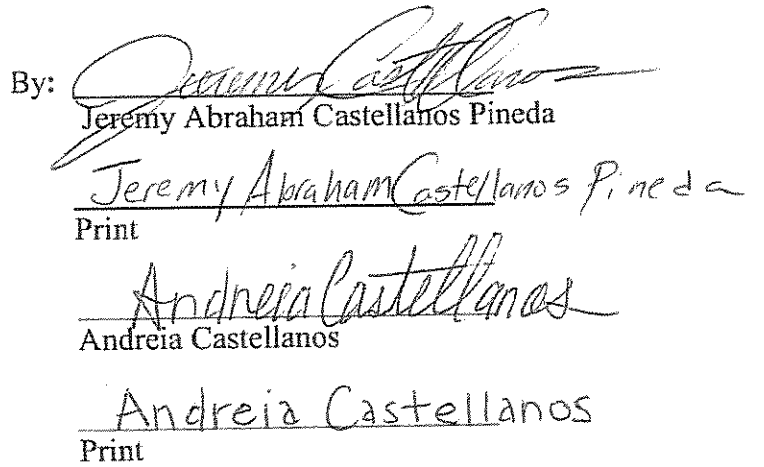 By: Jeremy Castellanos
Jeremy Abraham Castellanos Pineda
Jeremy Abraham Castellanos Pineda
Print
Andreia Castellanos
Andreia Castellanos
Andreia Castellanos
Print